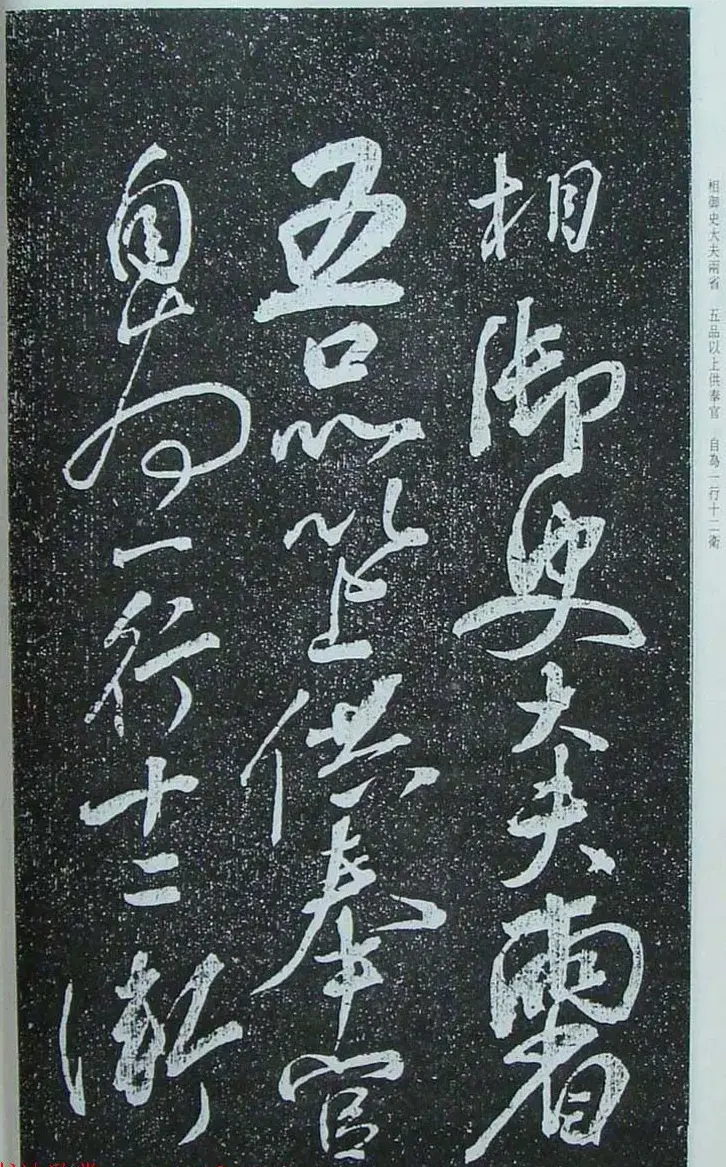 相御史大夫兩省
五品以上供奉官
自為一行十二衛
相御史大夫兩省 五品以上供奉官 自為一行十二衛